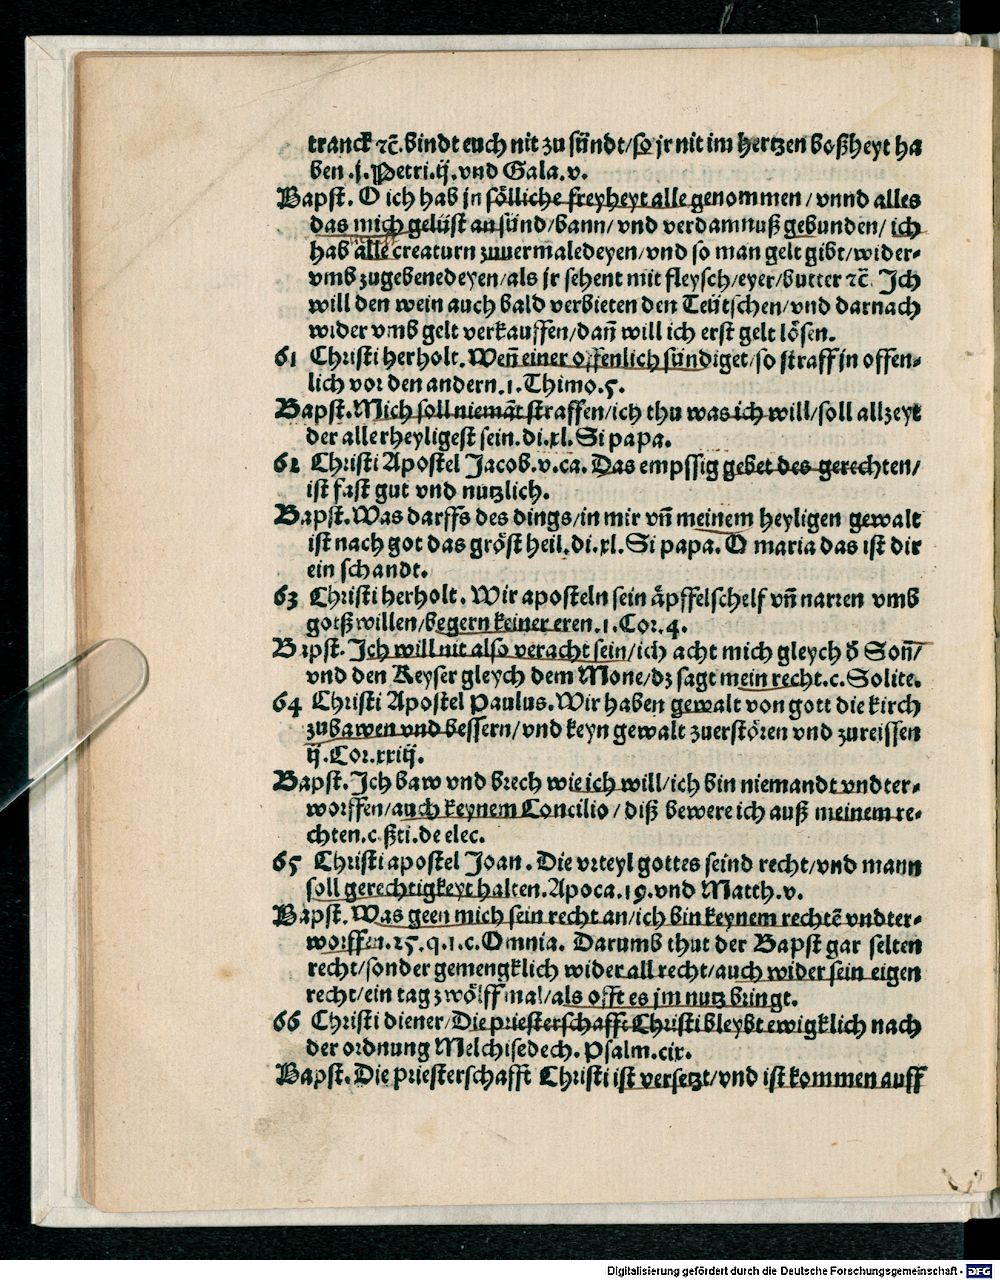 tranck ⁊c̄. bindt euch nit zu sündt/so jr nit im hertzen boßheyt ha
ben .j. Petri.ij. vnd Gala.v.
Bapst. O ich hab jn sölliche freyheyt alle genommen/vnnd alles
das mich gelüst an sünd/bann/vnd verdamnuß gebunden/ich
hab alle creaturn zuuermaledeyen/vnd so man gelt gibt/wider-
vmb zugebenedeyen/als jr sehent mit fleysch/eyer/butter ⁊c̄. Ich
will den wein auch bald verbieten den Teütschen/vnd darnach
wider vmb gelt verkauffen/dañ will ich erst gelt lösen.
61 Christi herholt. Weñ einer offenlich sündiget/so straff jn offen-
lich vor den andern.1. Thimo.5.
Bapst. Mich soll niemāt straffen/ich thu was ich will/soll allzeyt
der allerheyligest sein.di.xl. Si papa.
62 Christi Apostel Jacob.v.ca. Das empssig gebet des gerechten/
ist fast gut vnd nutzlich.
Bapst. Was darffs des dings/in mir vñ meinem heyligen gewalt
ist nach got das gröst heil.di.xl. Si papa. O maria das ist dir
ein schandt.
63 Christi herholt. Wir aposteln sein äpffelschelf vñ narren vmb
gotß willen/begern keiner eren.1. Cor.4.
Bapst. Ich will nit also veracht sein/ich acht mich gleych d̄ Soñ/
vnd den Keyser gleych dem Mone/dz sagt mein recht.c. Solite.
64 Christi Apostel Paulus. Wir haben gewalt von gott die kirch
zubawen vnd bessern/vnd keyn gewalt zuerstören vnd zureissen
ij. Cor.xxiij.
Bapst. Ich baw vnd brech wie ich will/ich bin niemandt vndter-
worffen/auch keynem Concilio/diß bewere ich auß meinem re-
chten.c. ßti. de elec.
65 Christi apostel Joan. Die vrteyl gottes seind recht/vnd mann
soll gerechtigkeyt halten. Apoca.19. vnd Matth.v.
Bapst. Was geen mich sein recht an/ich bin keynem rechtē vndter-
worffen.25.q.1.c. Omnia. Darumb thut der Bapst gar selten
recht/sonder gemengklich wider all recht/auch wider sein eigen
recht/ein tag zwölff mal/als offt es jm nutz bringt.
66 Christi diener/Die priesterschafft Christi bleybt ewigklich nach
der ordnung Melchisedech. Psalm.cix.
Bapst. Die priesterschafft Christi ist versetzt/vnd ist kommen auff
Digitalisierung gefördert durch die Deutsche Forschungsgemeinschaft - DFG